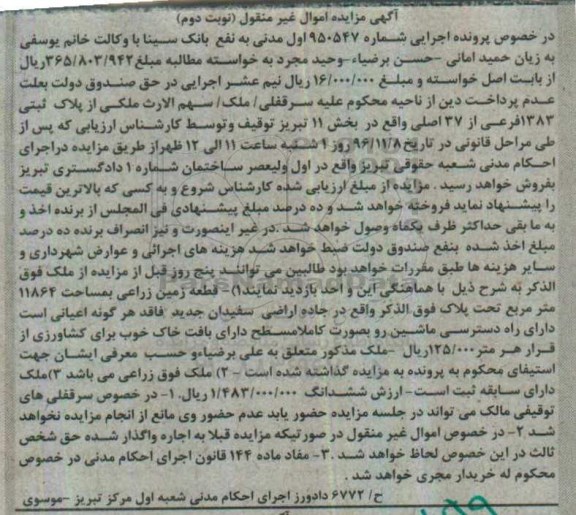 آگهی مزایده اموال غیر منقول (نوبت دوم)
در خصوص پرونده اجرایی شماره ۹۵۰۵۴۷ اول مدنی به نفع بانک سینا با وکالت خانم یوسفی
به زیان حمید امانی -حسن برضیاء-وحید مجرد به خواسته مطالبه مبلغ ۳۶۵/۸۰۳/۹۴۲ریال
از بابت اصل خواسته و مبلغ ۱۶/۰۰۰/۰۰۰ ریال نیم عشر اجرایی در حق صندوق دولت بعلت
عدم پرداخت دین از ناحیه محکوم علیه سرقفلی/ ملک/ سهم الارث ملکی از پلاک ثبتی
۱۳۸۳فرعی از ۳۷ اصلی واقع در بخش ۱۱ تبریز توقیف وتوسط کارشناس ارزیابی که پس از
طی مراحل قانونی در تاریخ۹۶/۱۱/۸ روز ۱ شنبه ساعت ۱۱ الی ۱۲ ظهراز طریق مزایده دراجرای
احکام مدنی شعبه حقوقی تبریز واقع در اول ولیعصر ساختمان شماره ۱ دادگستری تبریز
بفروش خواهد رسید . مزایده از مبلغ ارزیابی شده کارشناس شروع و به کسی که بالاترین قیمت
را پیشنهاد نماید فروخته خواهد شد و ده درصد مبلغ پیشنهادی فی المجلس از برنده اخذ و
به ما بقی حداکثر ظرف یکماه وصول خواهد شد .در غیر اینصورت و نیز انصراف برنده ده درصد
مبلغ اخذ شده بنفع صندوق دولت ضبط خواهد شد هزینه های اجرائی و عوارض شهرداری و
سایر هزینه ها طبق مقررات خواهد بود طالبین می توانند پنج روز قبل از مزایده از ملک فوق
الذکر به شرح ذیل با هماهنگی این و احد بازدید نمایند۱) - قطعه زمین زراعی بمساحت ۱۱۸۶۴
متر مربع تحت پلاک فوق الذکر واقع در جاده اراضی سفیدان جدید فاقد هر گونه اعیانی است
دارای راه دسترسی ماشین رو بصورت کاملامسطح دارای بافت خاک خوب برای کشاورزی از
قرار هر متر ۱۲۵/۰۰۰ریال -ملک مذکور متعلق به علی برضیاءو حسب معرفی ایشان جهت
استیفای محکوم به پرونده به مزایده گذاشته شده است - ۲) ملک فوق زراعی می باشد ۳)ملک
دارای سابقه ثبت است- ارزش ششدانگ ۱/۴۸۳/۰۰۰/۰۰۰ ریال. ۱- در خصوص سرقفلی های
توقیفی مالک می تواند در جلسه مزایده حضور یابد عدم حضور وی مانع از انجام مزایده نخواهد
شد ۲- در خصوص اموال غیر منقول در صورتیکه مزایده قبلا به اجاره واگذار شده حق شخص
ثالث در این خصوص لحاظ خواهد شد .۳- مفاد ماده ۱۴۴ قانون اجرای احکام مدنی در خصوص
محکوم له خریدار مجری خواهد شد .
ح/ ۶۷۷۲ دادورز اجرای احکام مدنی شعبه اول مرکز تبریز -موسوی